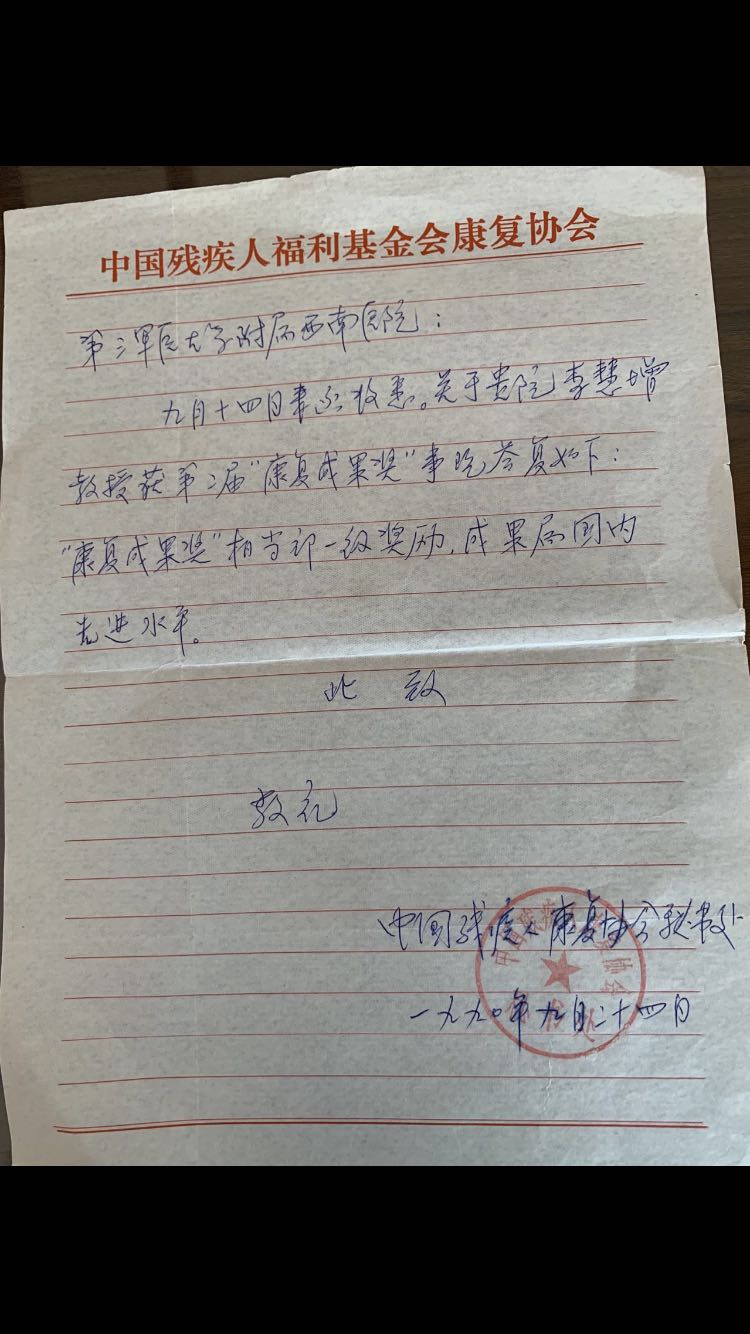 中国残疾人福利基金会康复协会
第三军医大学附属西南医院：
九月十四日来函收悉。关于贵院李慧增
教授获第二届“康复成果奖”事现答复如下：
“康复成果奖”相当部一级奖励，成果属国内
先进水平。
此致
敬礼
中国残疾人康复协会秘书处
一九九〇年九月二十四日